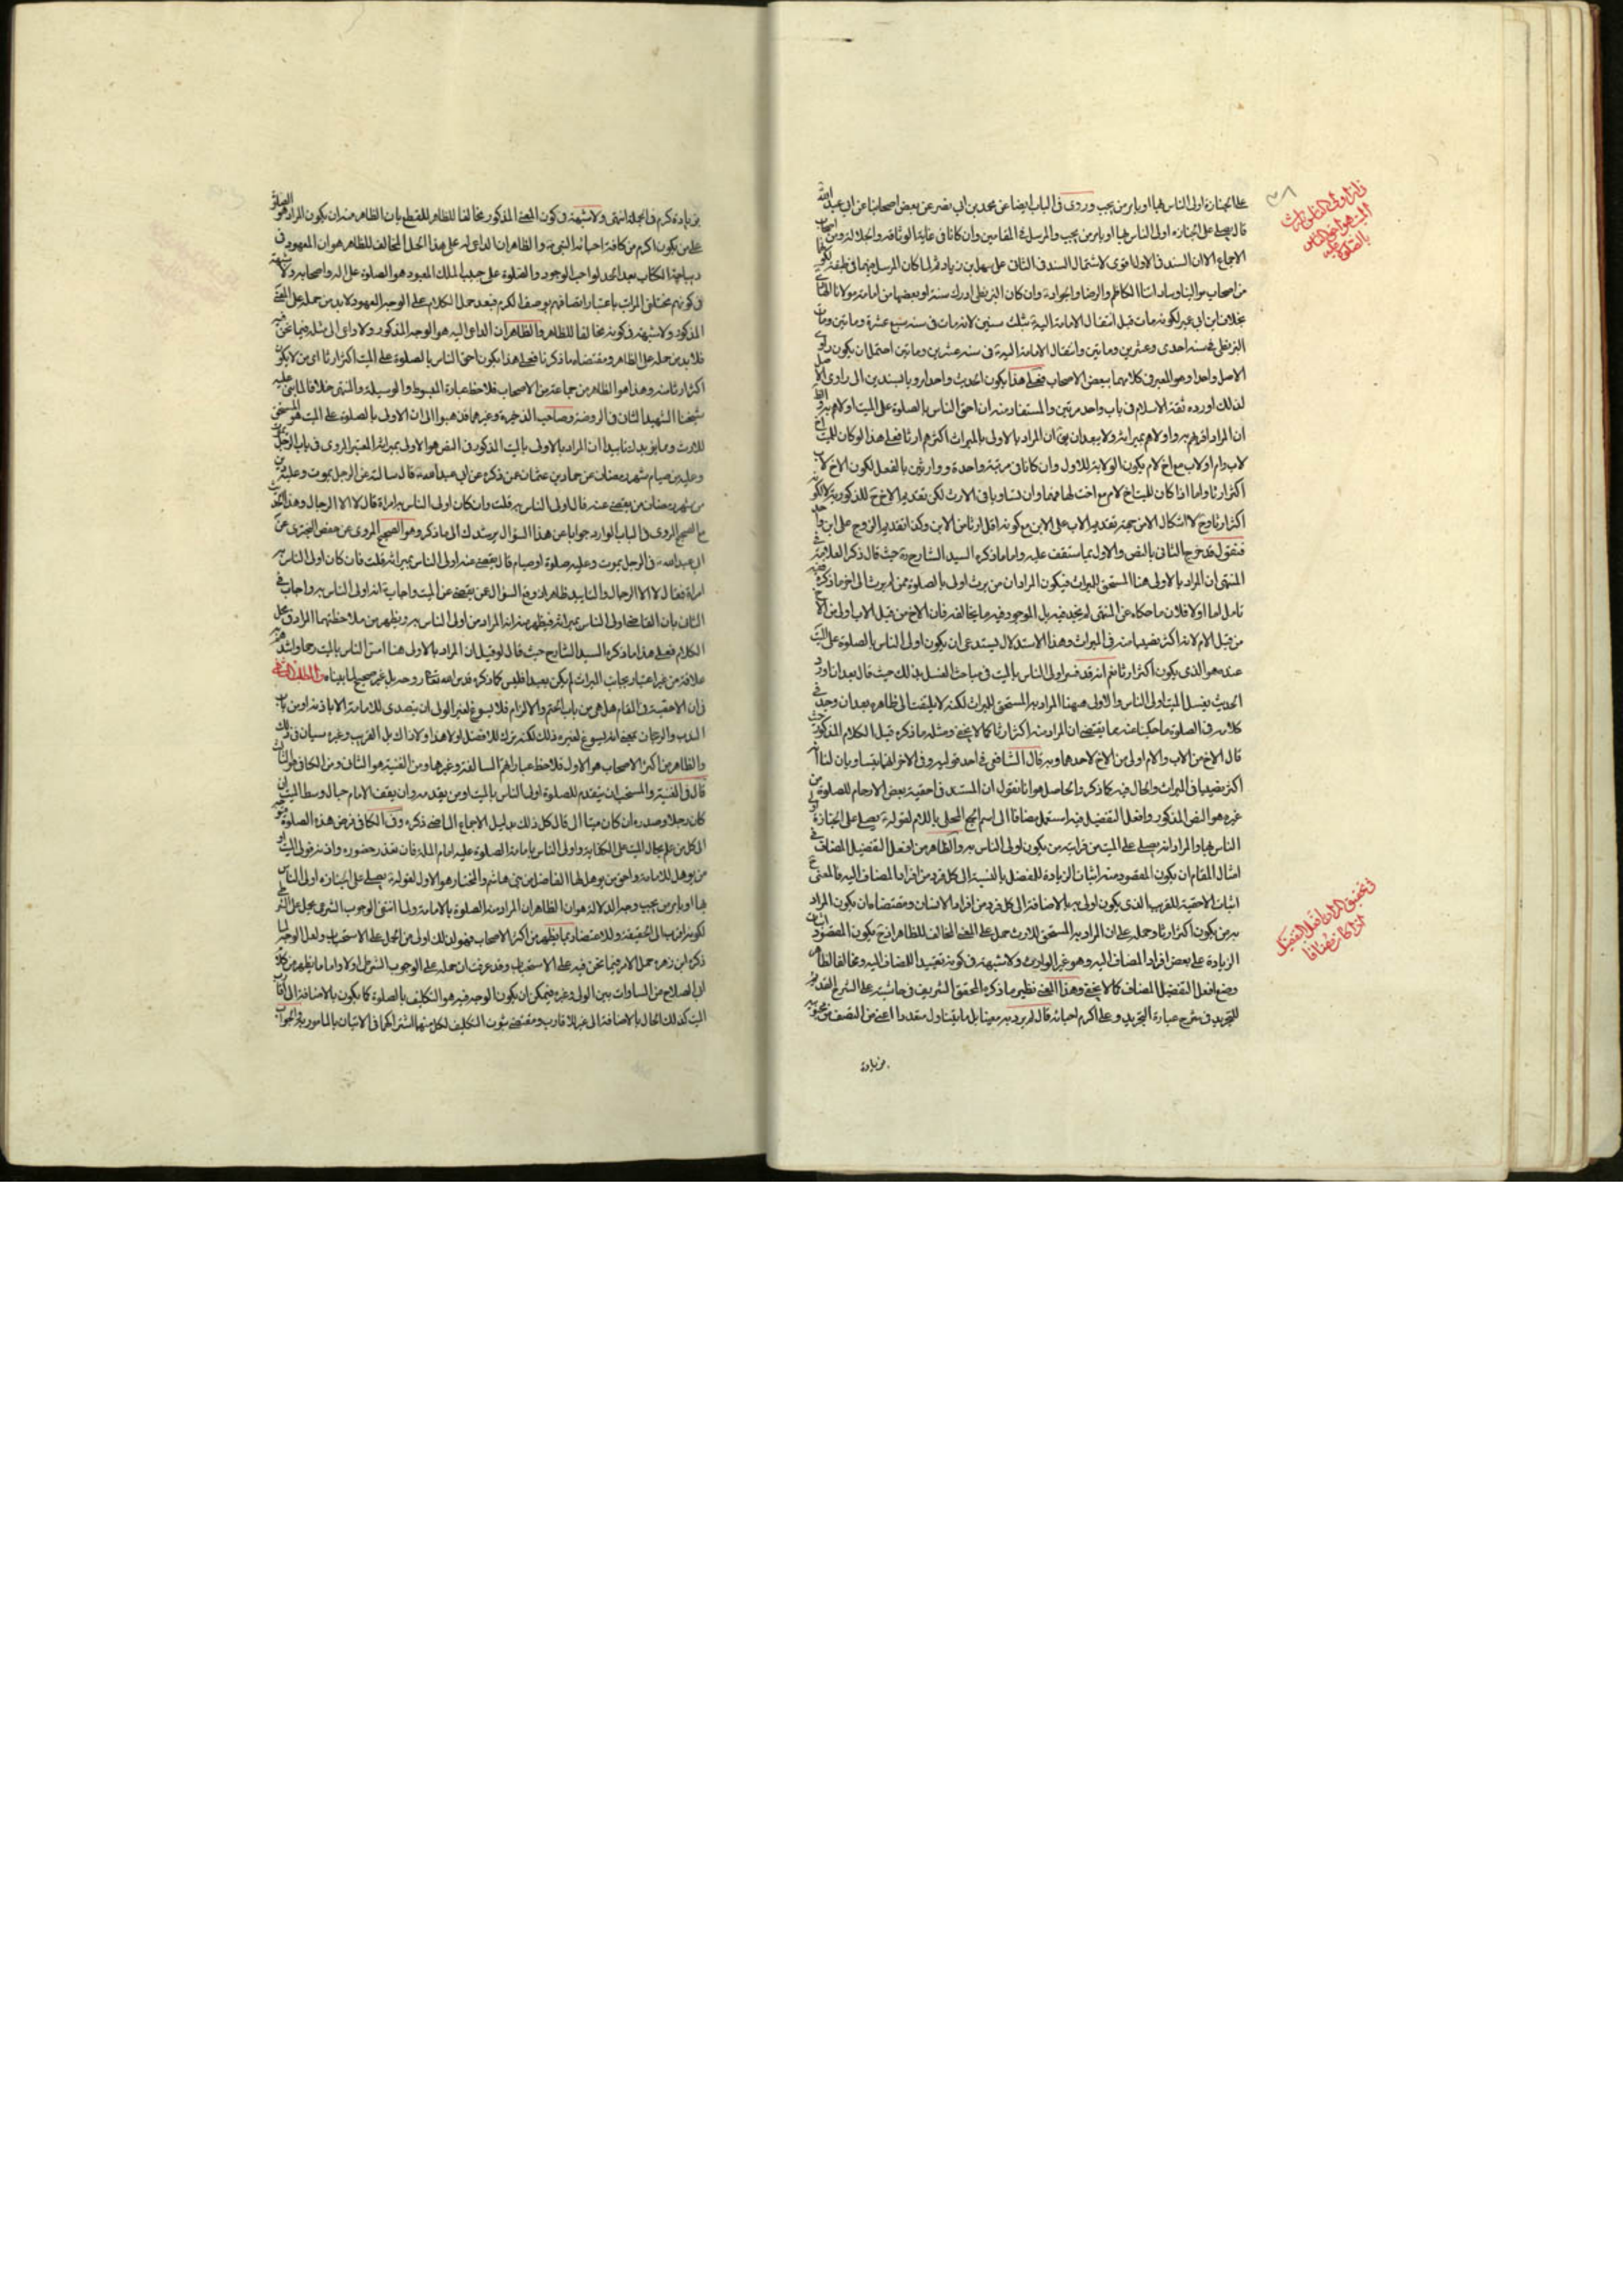 على الجنازة اولى الناس بها او يامر من يحب وروى في الباب ايضا عن محمد بن ابي نصر عن بعض اصحابنا عن ابي عبد الله
قال يصلي على الجنازة اولى الناس بها او يامر من يحب والمرسل في المقامين وان كانا في غاية الوثاقة والجلالة ومن اصحاب
الاجماع الا ان السند في الاول اقوى لاشتمال السند في الثاني على سهل بن زياد ثم لما كان المرسل فيهما في طبقة
من اصحاب موالينا وساداتنا الكاظم والرضا والجواد وان كان البزنطي ادرك سنة او بعضها من امامة مولانا
بخلاف ابن ابي عمير لكونه مات قبل انتقال الامامة اليه بثلث سنين لانه مات في سنة سبع عشرة وماتين ومات
البزنطي في سنة احدى وعشرين وماتين وانتقال الامامة اليه في سنة عشرين وماتين احتمل ان يكون راوي
الاصل واحدا وهو المعبر في كلامهما ببعض الاصحاب فعلى هذا يكون الحديث واحدا رويا بسندين الى راوي الاصل
لذلك اورده ثقة الاسلام في باب واحد مرتين والمستفاد منه ان احق الناس بالصلوة على الميت اولاهم به
ان المراد اقربهم به واولاهم بميراثه ولا يبعد ان يق ان المراد بالاولى بالميراث اكثرهم ارثا فعلى هذا لو كان للميت اخ
لاب وام او لاب مع اخ لام يكون الولاية للاول وان كانا في مرتبة واحدة ووارثين بالفعل لكون الاخ لاب
اكثر ارثا واما اذا كان للميت اخ لام مع اخت لها فهما وان تساويا في الارث لكن تقديم الاخ ح للذكورية لا لكونه
اكثر ارثا وح لا اشكال الا من جهة تقديم الاب على الابن مع كونه اقل ارثا من الابن وكذا تقديم الزوج على ابن
فنقول قد خرج الثاني بالنص والاول بما ستقف عليه واما ما ذكره السيد الشارح ره حيث قال ذكر العلامة في
المنتهى ان المراد بالاولى هنا المستحق للميراث فيكون المراد ان من يرث اولى بالصلوة ممن لم يرث الى اخر ما ذكره
تامل اما اولا فلان ما حكاه عن المنتهى لم نجد فيه بل الموجود فيه ما يخالفه فان الاخ من قبل الاب اولى من الاخ
من قبل الام لانه اكثر نصيبا منه في الميراث وهذا الاستدلال يستدعي ان يكون اولى الناس بالصلوة على الميت
عنده هو الذي يكون اكثر ارثا نعم انه قد فسر اولى الناس بالميت في مباحث الغسل بذلك حيث قال بعد ان اورد
الحديث يغسل الميت اولى الناس والاولى ههنا المراد به المستحق للميراث لكنه لا يلتفت الى ظاهره بعد ان وجد في
كلامه في الصلوة ما حكينا عنه مما يقتضي ان المراد منه اكثر ارثا كما لا يخفى ومثله ما ذكره قبل الكلام المذكور حيث
قال الاخ من الاب والام اولى من الاخ لاحدهما وبه قال الشافعي في احد قوليه وفي الاخر انهما يتساويان لنا انه
اكثر نصيبا في الميراث والحال فيه كما ذكر والحاصل هو انا نقول ان المستند في احقية بعض الارحام للصلوة من
غيره هو النص المذكور وافعل التفضيل فيه استعمل مضافا الى اسم الجمع المحلى باللام لقوله يصلي على الجنازة اولى
الناس بها والمراد انه يصلي على الميت من قرابته من يكون اولى الناس به والظاهر من افعل التفضيل المضاف في
امثال المقام ان يكون المقصود منه اثبات الزيادة للمفضل بالنسبة الى كل فرد من افراد المضاف اليه فالمعنى
اثبات الاحقية للقريب الذي يكون اولى به بالاضافة الى كل فرد من افراد الانسان ومقتضاه ان يكون المراد
به من يكون اكثر ارثا وحمله على ان المراد به المستحق للارث حمل على المعنى المخالف للظاهر اذ ح يكون المقصود اثبات
الزيادة على بعض افراد المضاف اليه وهو غير الوارث ولا شبهة في كونه تقييدا للمضاف اليه ومخالفا لظاهر
وضع افعل التفضيل المضاف كما لا يخفى وهذا المعنى نظير ما ذكره المحقق الشريف في حاشيته على الشرح القديم
للتجريد في شرح عبارة التجريد وعلى اكرم احبائه قال لم يرد به معينا بل ما يتناول متعددا اعني من اتصف من محبوبيه
بزيادة
في ان اولى الناس بميراث الميت هو احق الناس بالصلوة عليه
في تحقيق المراد بافعل التفضيل اذا كان مضافا
بزيادة كرم في الجملة انتهى ولا شبهة في كون المعنى المذكور مخالفا للظاهر للقطع بان الظاهر منه ان يكون المراد هو الصلوة
على من يكون اكرم من كافة احباء النبي والظاهر ان الداعي له على هذا الحمل المخالف للظاهر هو ان المعهود في
ديباجة الكتاب بعد الحمد لواجب الوجود والصلوة على حبيب الملك المعبود هو الصلوة على اله واصحابه ولا شبهة
في كونهم مختلفي المراتب باعتبار اتصافهم بوصف الكرم فبعد حمل الكلام على الوجه المعهود لا بد من حمله على المعنى
المذكور ولا شبهة في كونه مخالفا للظاهر والظاهر ان الداعي اليه هو الوجه المذكور ولا داعي الى مثله فيما نحن فيه
فلا بد من حمله على الظاهر ومقتضاه ما ذكرنا فعلى هذا يكون احق الناس بالصلوة على الميت اكثر ارثا اي من لا يكون
اكثر ارثا منه وهذا هو الظاهر من جماعة من الاصحاب فلاحظ عبارة المبسوط والوسيلة والمنتهى خلافا لما بنى عليه
شيخنا الشهيد الثاني في الروضة وصاحب الذخيرة وغيرهما فذهبوا الى ان الاولى بالصلوة على الميت هو المستحق
للارث ومما يؤيدك تاييدا ان المراد بالاولى بالميت المذكور في النص هو الاولى بميراثه المعتبر المروي في باب الرجل يموت
وعليه من صيام شهر رمضان عن حماد بن عثمان عمن ذكره عن ابي عبد الله قال سالته عن الرجل يموت وعليه دين
من شهر رمضان من يقضي عنه قال اولى الناس به قلت وان كان اولى الناس به امراة قال لا الا الرجال وهذا الحديث
مع الصحيح المروي في الباب الوارد جوابا عن هذا السؤال يرشدك الى ما ذكر وهو الصحيح المروي عن حفص البختري عن
ابي عبد الله في الرجل يموت وعليه صلوة او صيام قال يقضي عنه اولى الناس بميراثه قلت فان كان اولى الناس به
امراة فقال لا الا الرجال والتاييد ظاهر اذ وقع السؤال عمن يقضي عن الميت واجاب انه اولى الناس به واجاب في
الثاني بان القاضي اولى الناس بميراثه فيظهر منه انه المراد من اولى الناس به ويظهر من ملاحظتهما المراد في محل
الكلام فعلى هذا ما ذكره السيد الشارح حيث قال لو قيل ان المراد بالاولى هنا امس الناس بالميت رحما واشدهم
علاقة من غير اعتبار بجانب الميراث لم يكن بعيدا فليس كما ذكره قدس الله تعالى روحه بل غير صحيح لما بيناه والمطلب الثاني
في ان الاحقية في المقام هل هي من باب الحتم والالزام فلا يسوغ لغير الولي ان يتصدى للامامة الا باذنه او من باب
الندب والرجحان بمعنى انه يسوغ لغيره ذلك لكنه ترك للافضل او لا هذا ولا ذاك بل القريب وغيره سيان في ذلك
والظاهر من اكثر الاصحاب هو الاول فلاحظ عباراتهم السالفة وغيرها ومن الغنية هو الثاني ومن الكافي هو الثالث
قال في الغنية والمستحب ان يتقدم للصلوة اولى الناس بالميت او من يقدمه وان يقف الامام حيال وسط الميت ان
كان رجلا وصدره ان كان ميتا الى قال كل ذلك بدليل الاجماع الماضي ذكره وفي الكافي فرض هذه الصلوة
الى كل من علم بحال الميت على الكفاية واولى الناس بامامة الصلوة عليه امام الملة فان تعذر حضوره واذنه فولي الميت او
من يؤهل للامامة واحق من يؤهل لها الفاضل من بني هاشم والمختار هو الاول لقوله يصلي على الجنازة اولى الناس
بها او يامر من يحب وجه الدلالة هو ان الظاهر ان المراد منه الصلوة بالامامة ولما انتفى الوجوب الشرعي يحمل على
لكونه اقرب الى الحقيقة وللاعتضاد بما يظهر من اكثر الاصحاب فهو لذلك اولى من الحمل على الاستحباب ولعل الوجه لما
ذكره ابن زهره حمل الامر فيما نحن فيه على الاستحباب وقد عرفت ان حمله على الوجوب الشرطي اولى واما ما يظهر من كلام
ابي الصلاح من المساوات بين الولي وغيره فيمكن ان يكون الوجه فيه هو التكليف بالصلوة كما يكون بالاضافة الى اقارب
الميت كذلك الحال بالاضافة الى غير الاقارب ومقتضى ثبوت التكليف لكل منهما اشتراكهما في الاتيان بالمامور به والجواب